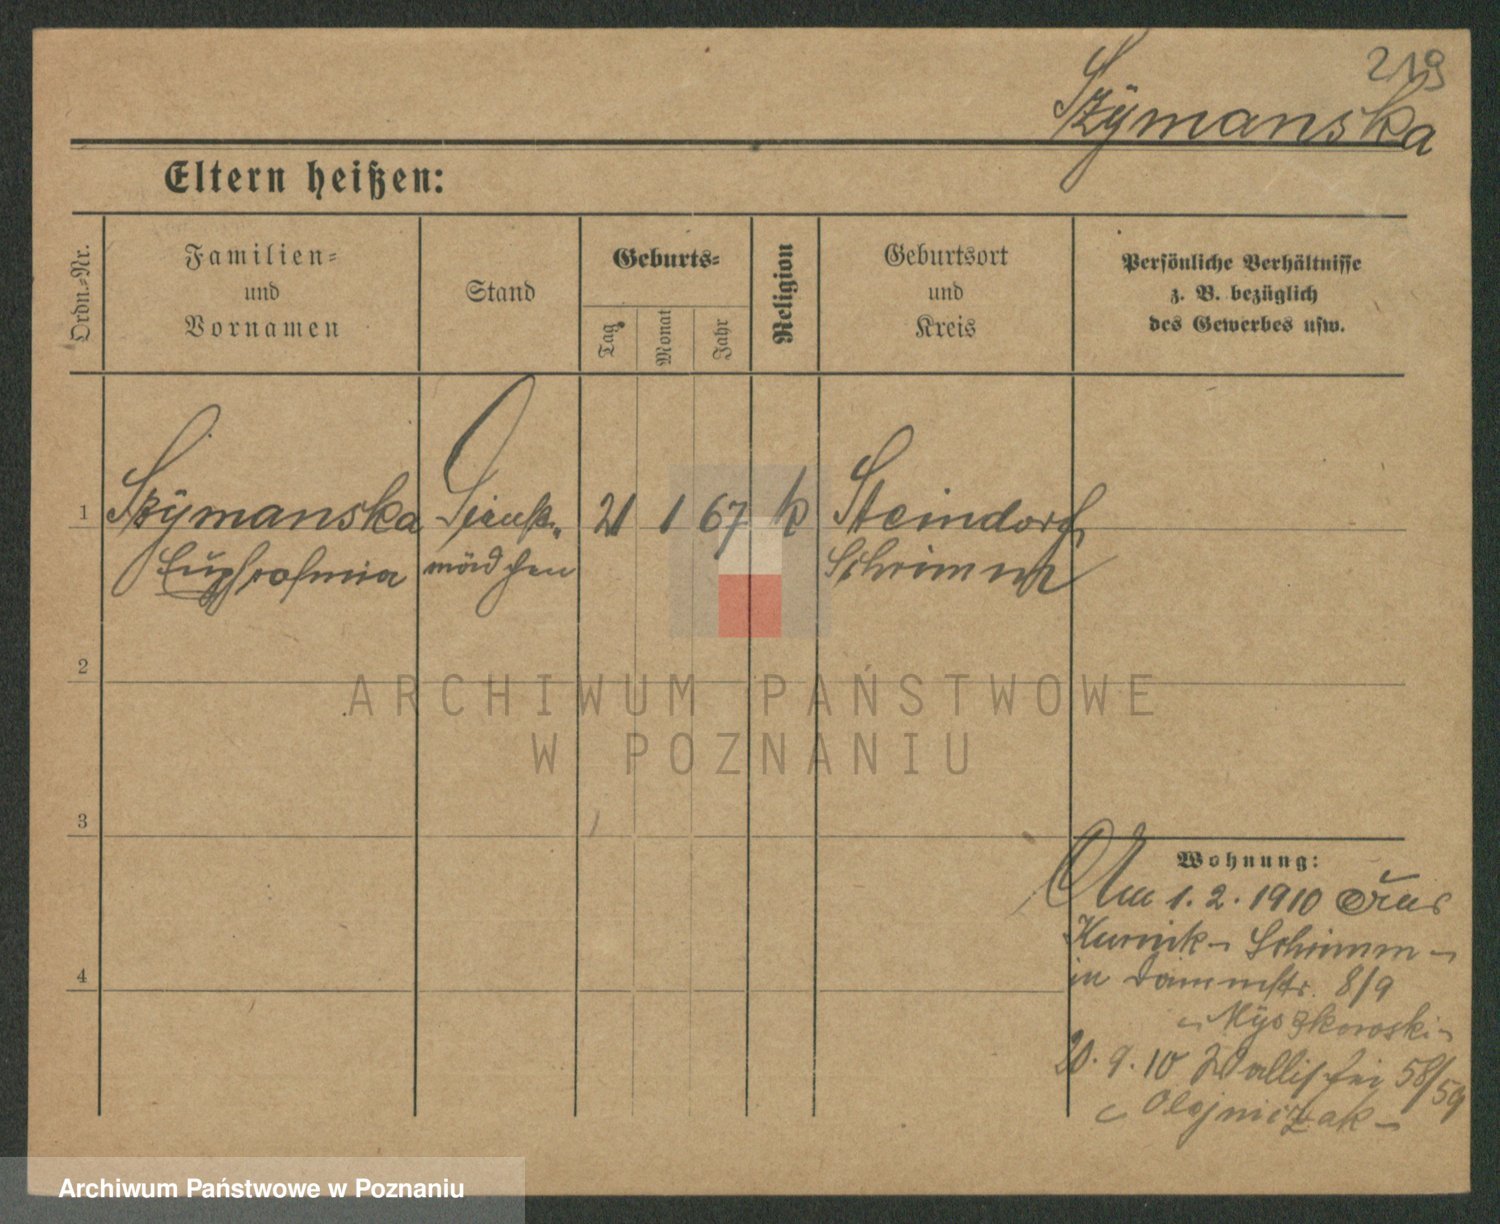 219
Szÿmanska
Eltern heißen:
Ordn.-Nr.
Familien- und Vornamen
Stand
Geburts-
Tag
Monat
Jahr
Religion
Geburtsort und Kreis
Persönliche Verhältnisse z. B. bezüglich des Gewerbes usw.
1
Szÿmanska
Euphrosinia
Dienst-
mädchen
21 1 67 k
Steindorf
Schrimm
2
3
4
Wohnung:
Am 1. 2. 1910 aus
Kurnik - Schrimm -
in Dammstr. 8/9
- Myszkowski -
20. 9. 10 Wallischei 58/59
Olejniczak -
ARCHIWUM PAŃSTWOWE
W POZNANIU
Archiwum Państwowe w Poznaniu